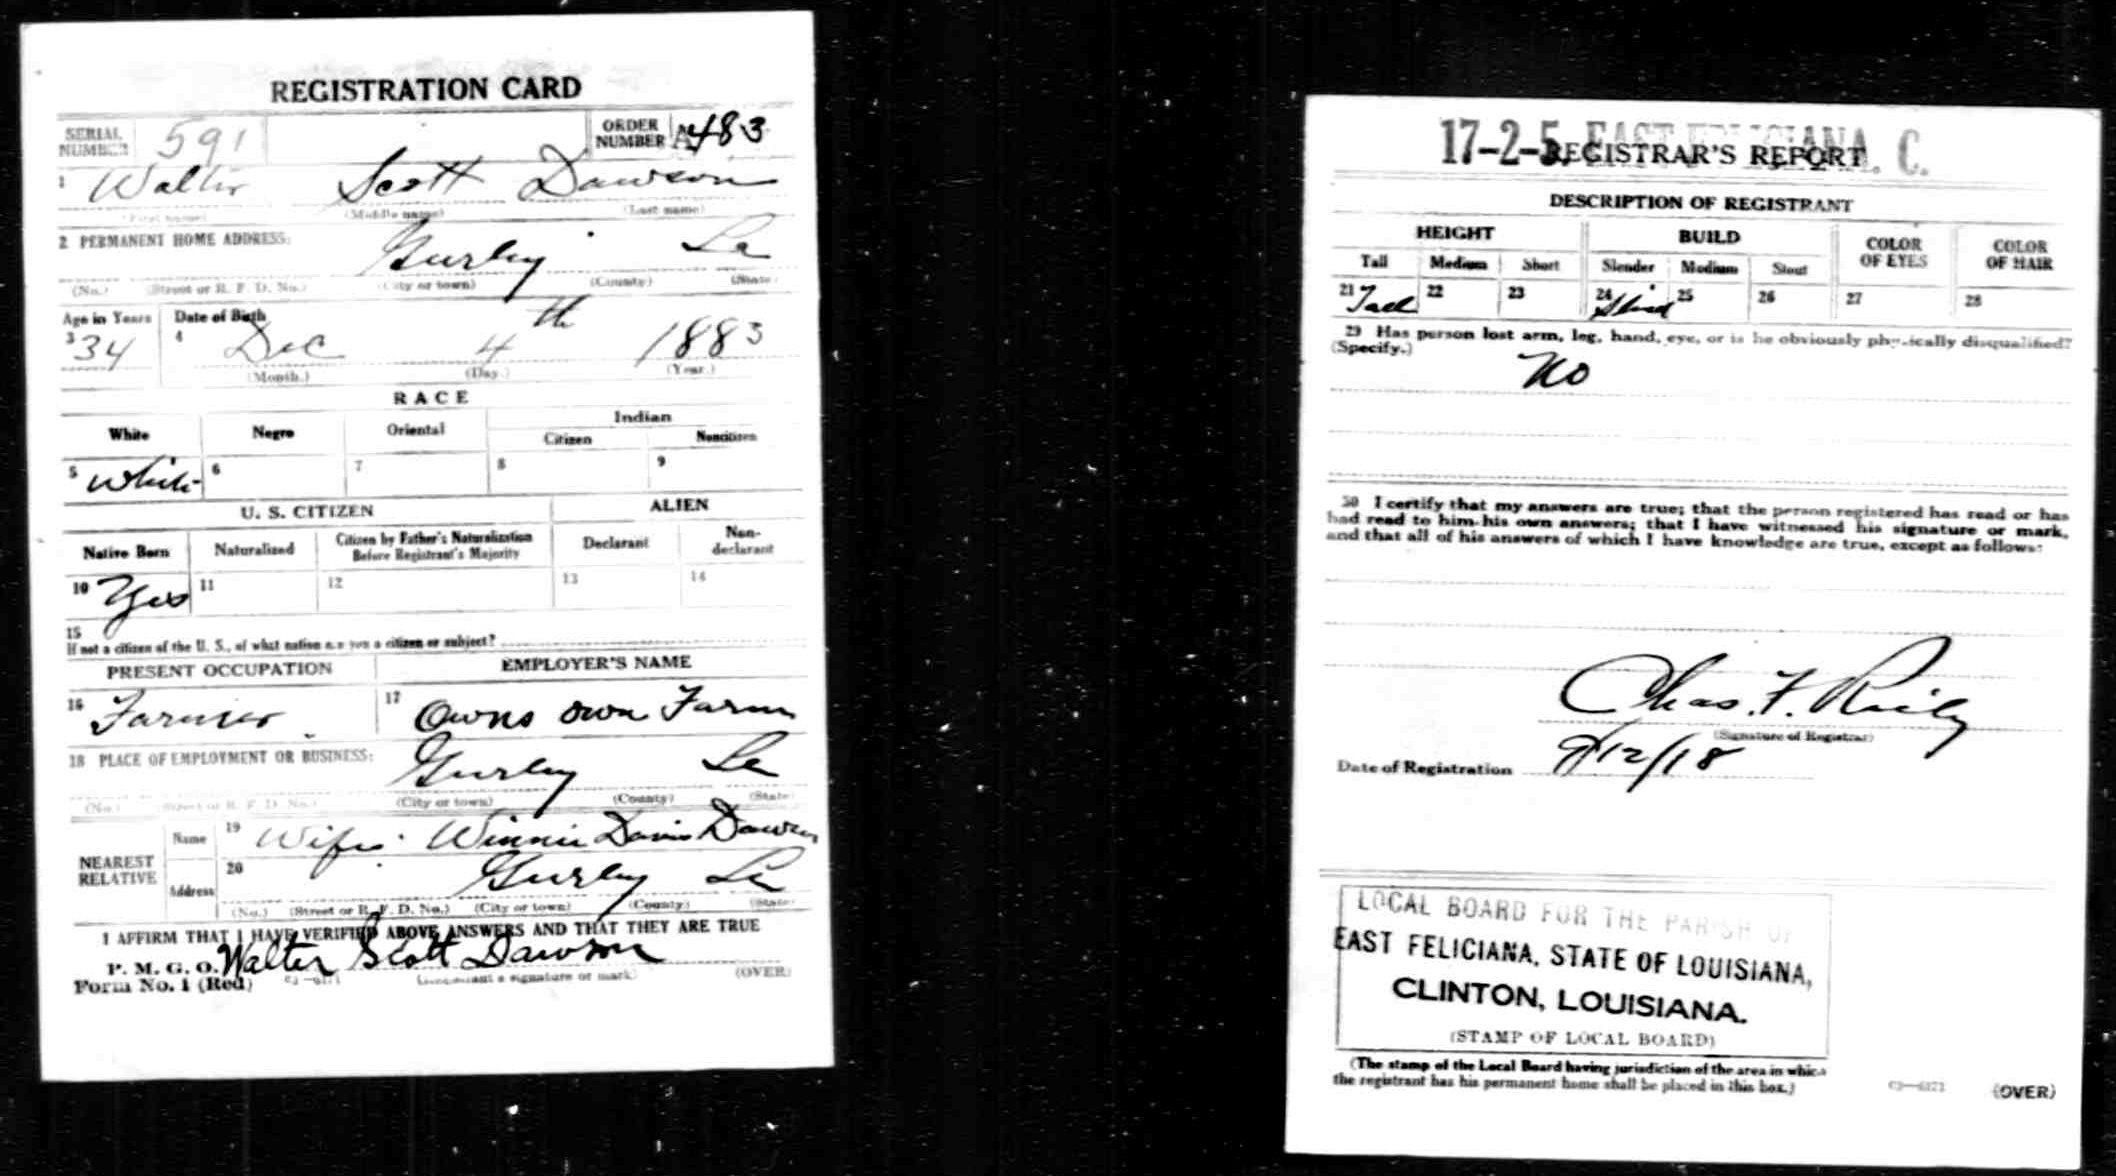 REGISTRATION CARD
SERIAL NUMBER 591 ORDER NUMBER A483
1 Walter Scott Dawson
(First name) (Middle name) (Last name)
2 PERMANENT HOME ADDRESS:
Gurley La
(No.) (Street or R. F. D. No.) (City or town) (County) (State)
Age in Years Date of Birth
3 34 4 Dec 4th 1883
(Month.) (Day.) (Year.)
RACE
White Negro Oriental Indian
Citizen Noncitizen
5 White 6 7 8 9
U. S. CITIZEN ALIEN
Native Born Naturalized Citizen by Father's Naturalization Before Registrant's Majority Declarant Non-declarant
10 Yes 11 12 13 14
15
If not a citizen of the U. S., of what nation are you a citizen or subject?
PRESENT OCCUPATION EMPLOYER'S NAME
16 Farmer 17 Owns own Farm
18 PLACE OF EMPLOYMENT OR BUSINESS:
Gurley La
(No.) (Street or R. F. D. No.) (City or town) (County) (State)
NEAREST RELATIVE
Name 19 Wife Winnie Davis Dawson
Address 20 Gurley La
(No.) (Street or R. F. D. No.) (City or town) (County) (State)
I AFFIRM THAT I HAVE VERIFIED ABOVE ANSWERS AND THAT THEY ARE TRUE
P. M. G. O.
Form No. 1 (Red)
Walter Scott Dawson
(Registrant's signature or mark) (OVER)
17-2-5 EAST FELICIANA. C.
REGISTRAR'S REPORT
DESCRIPTION OF REGISTRANT
HEIGHT BUILD COLOR OF EYES COLOR OF HAIR
Tall Medium Short Slender Medium Stout
21 Tall 22 23 24 25 26 27 28
29 Has person lost arm, leg, hand, eye, or is he obviously physically disqualified?
(Specify.)
No
30 I certify that my answers are true; that the person registered has read or has
had read to him his own answers; that I have witnessed his signature or mark,
and that all of his answers of which I have knowledge are true, except as follows:
Chas. F. Reily
(Signature of Registrar)
Date of Registration 9/12/18
LOCAL BOARD FOR THE PARISH OF
EAST FELICIANA, STATE OF LOUISIANA,
CLINTON, LOUISIANA.
(STAMP OF LOCAL BOARD)
(The stamp of the Local Board having jurisdiction of the area in which
the registrant has his permanent home shall be placed in this box.)
03—6171 (OVER)